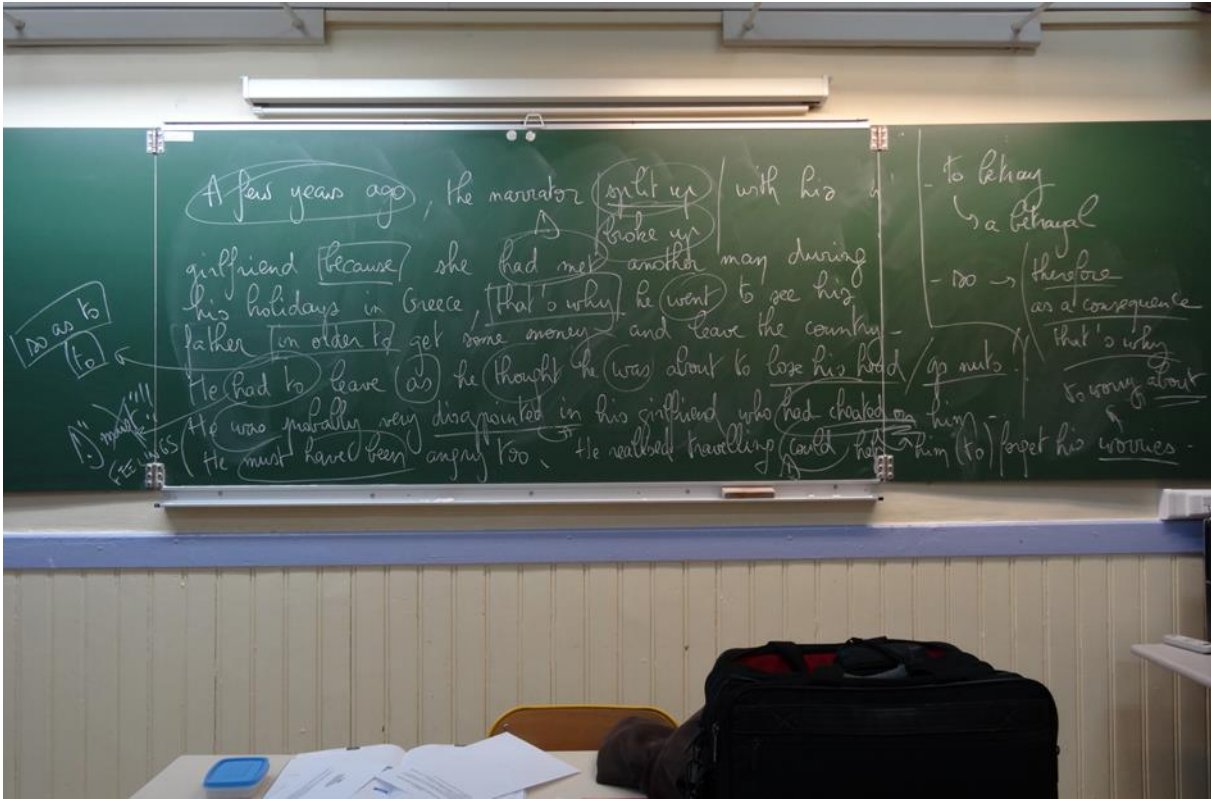 A few years ago, the narrator split up with his
broke up
girlfriend because she had met another man during
his holidays in Greece, that's why he went to see his
father in order to get some money and leave the country.
He had to leave as he thought he was about to lose his head / go nuts!
He was probably very disapointed in his girlfriend who had cheated on him.
He must have been angry too. He realised travelling could help him (to) forget his worries.
so as to
(to)
"must"
- to betray
↳ a betrayal
- so → therefore
as a consequence
that's why
to worry about